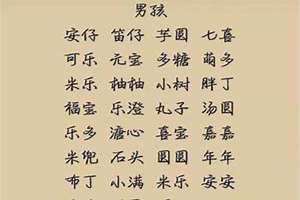 男孩
安仔 笛仔 芋圆 七喜
可乐 元宝 多糖 萌多
米乐 柚柚 小树 胖丁
福宝 乐澄 丸子 汤圆
乐多 溏心 喜宝 嘉嘉
米兜 石头 圆圆 年年
布丁 小满 米乐 安安